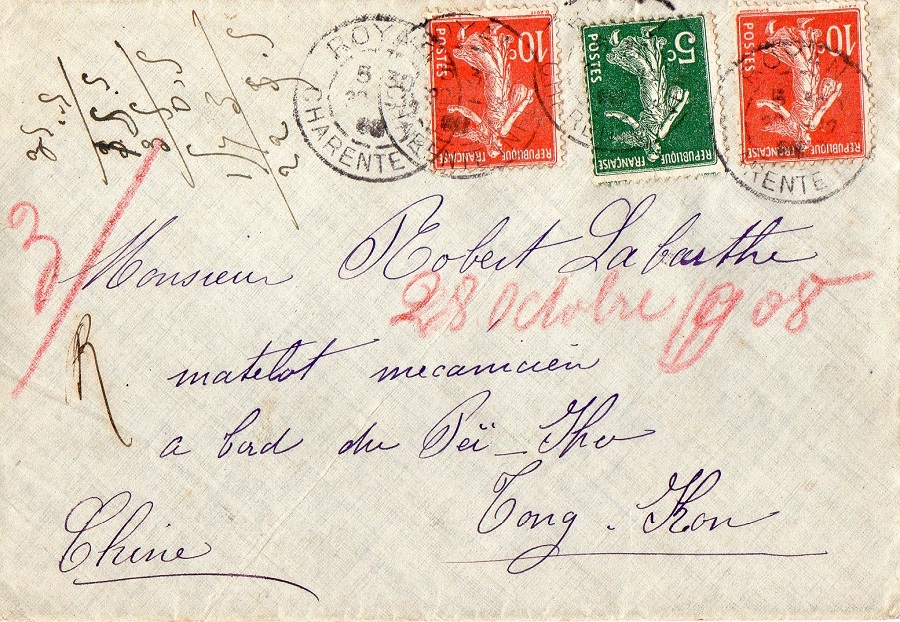 10c POSTES REPUBLIQUE FRANÇAISE
5c POSTES REPUBLIQUE FRANÇAISE
10c POSTES REPUBLIQUE FRANÇAISE
ROYAN
CHARENTE
3
Monsieur Robert Labarthe
28 Octobre 1908
R.
matelot mecanicien
a bord du Peï-Ho
Tong-Kou
Chine